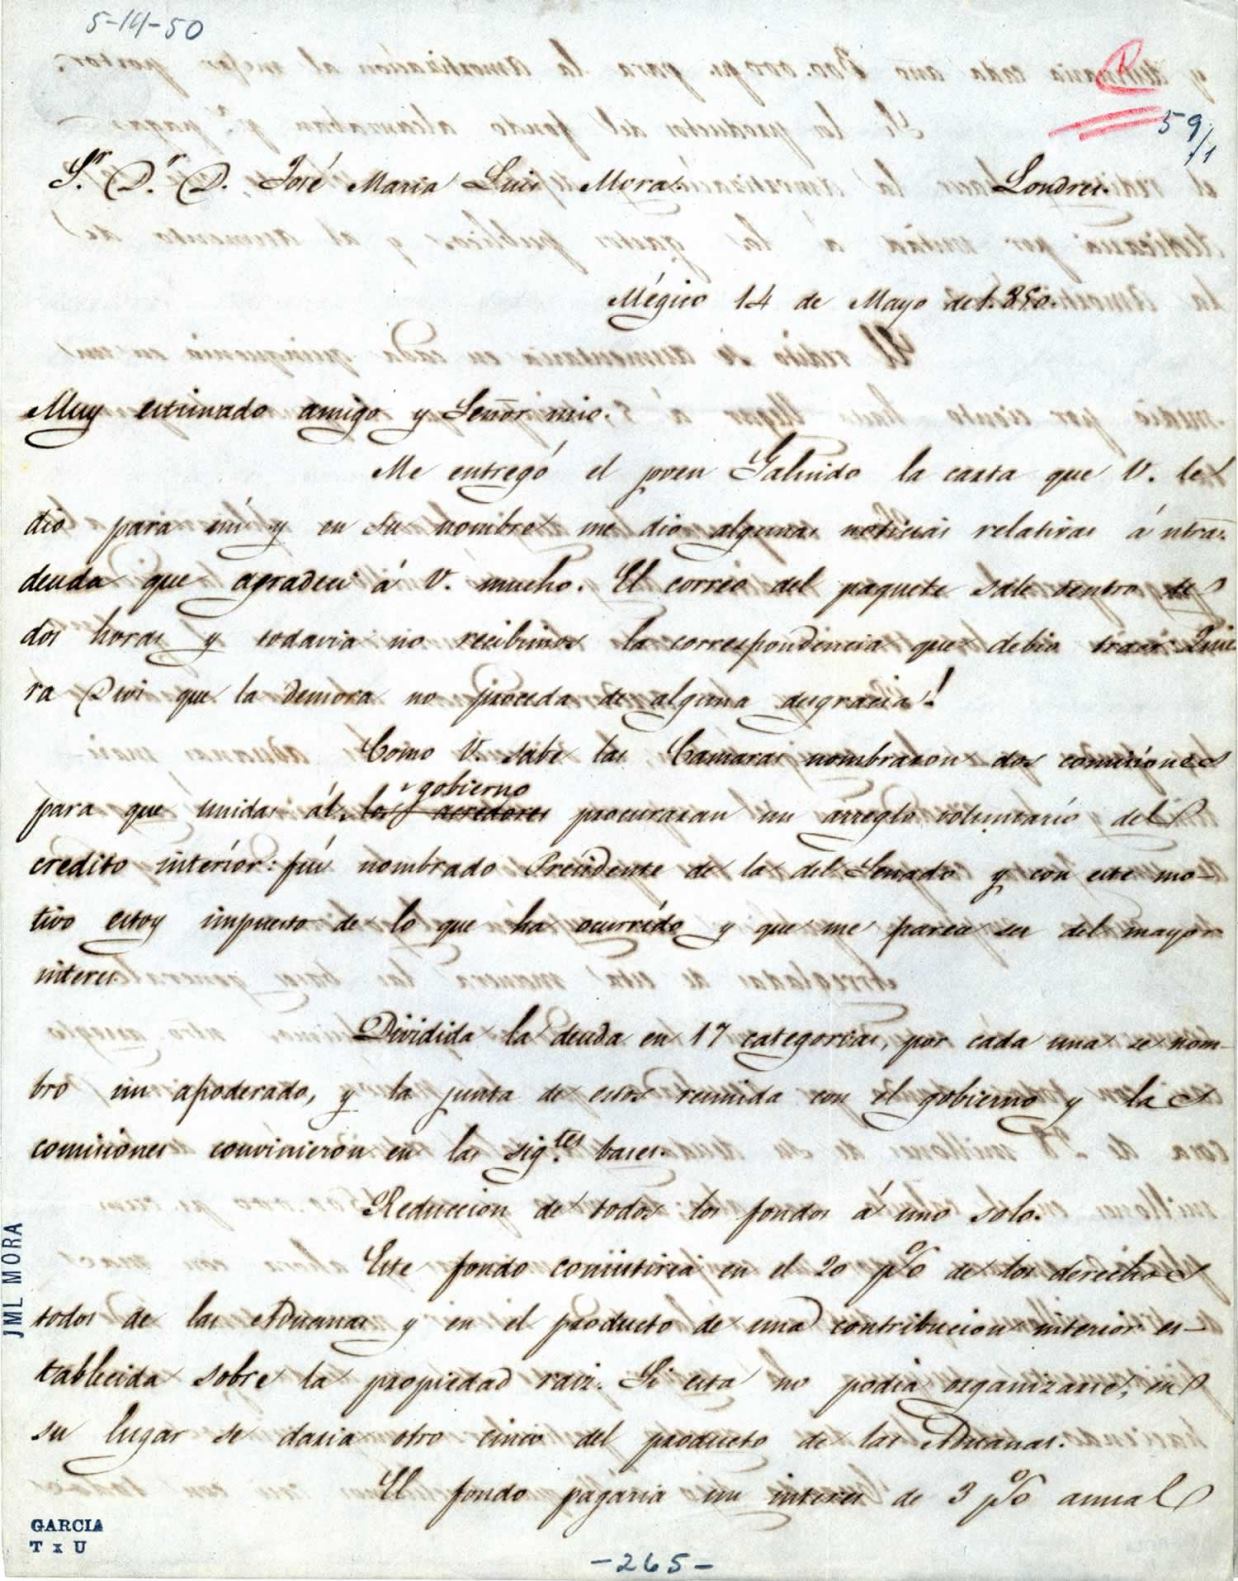 5-14-50
59/1
Sr. Dr. D. José Maria Luis Mora. Londres.
Mégico 14 de Mayo de 1.850.
Muy estimado amigo y Señor mio.
Me entregó el joven Galindo la carta que V. le
dió para mí y en su nombre me dio algunas noticias relativas á ntra.
deuda que agradecí á V. mucho. El correo del paquete sale dentro de
dos horas y todavia no recibimos la correspondencia que debio traer. Quie
ra Dios que la demora no proceda de alguna desgracia!
Como V. sabe las Camaras nombraron dos comisiones
para que unidas ál los acredores gobierno procuraran un arreglo voluntario del
credito interior: fuí nombrado Presidente de la del Senado y con este mo-
tivo estoy impuesto de lo que ha ocurrido y que me parece ser del mayor
interes.
Dividida la deuda en 17 categorias, por cada una se nom-
bro un apoderado, y la junta de estos reunida con el gobierno y las
comisiones convinieron en las sig.tes bases.
Reduccion de todos los fondos á uno solo.
Este fondo consistiria en el 20 p% de los derechos
todos de las Aduanas y en el producto de una contribucion interior es-
tablecida sobre la propiedad raiz. Si esta no podia organizarse, en
su lugar se daria otro cinco del producto de las Aduanas.
El fondo pagaria un interes de 3 p% annual
JML MORA
GARCIA
T x U
-265-